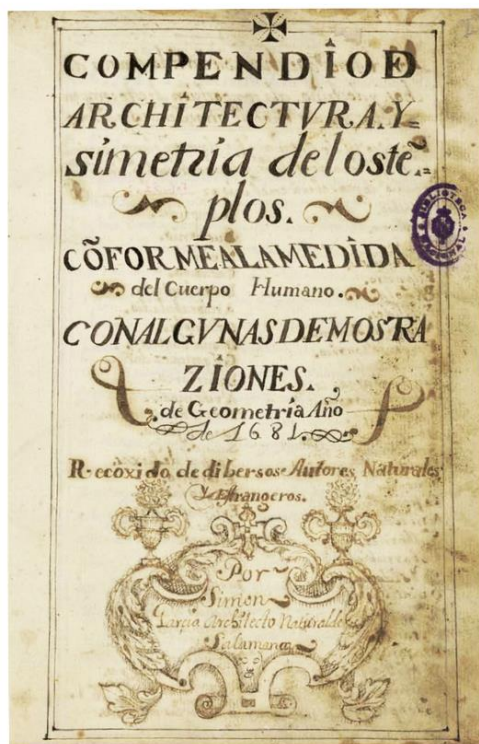 COMPENDIO D
ARCHITECTVRA. Y=
simetria de los tē.=
plos.
CÕFORME A LA MEDIDA
del Cuerpo Humano.
CON ALGVNAS DEMOSTRA
ZIONES.
de Geometría Año
de 1681.
Recoxido de dibersos Autores, Naturales
Y Estrangeros.
Por
Simon
Garcia Architecto Natural de
Salamanca
BIBLIOTECA NACIONAL